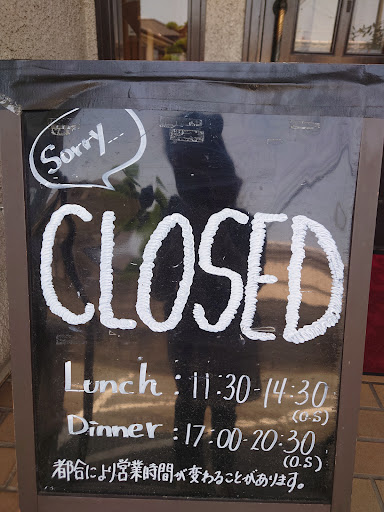 Sorry...
CLOSED
Lunch : 11:30-14:30
(O.S)
Dinner : 17:00-20:30
(O.S)
都合により営業時間が変わることがあります。